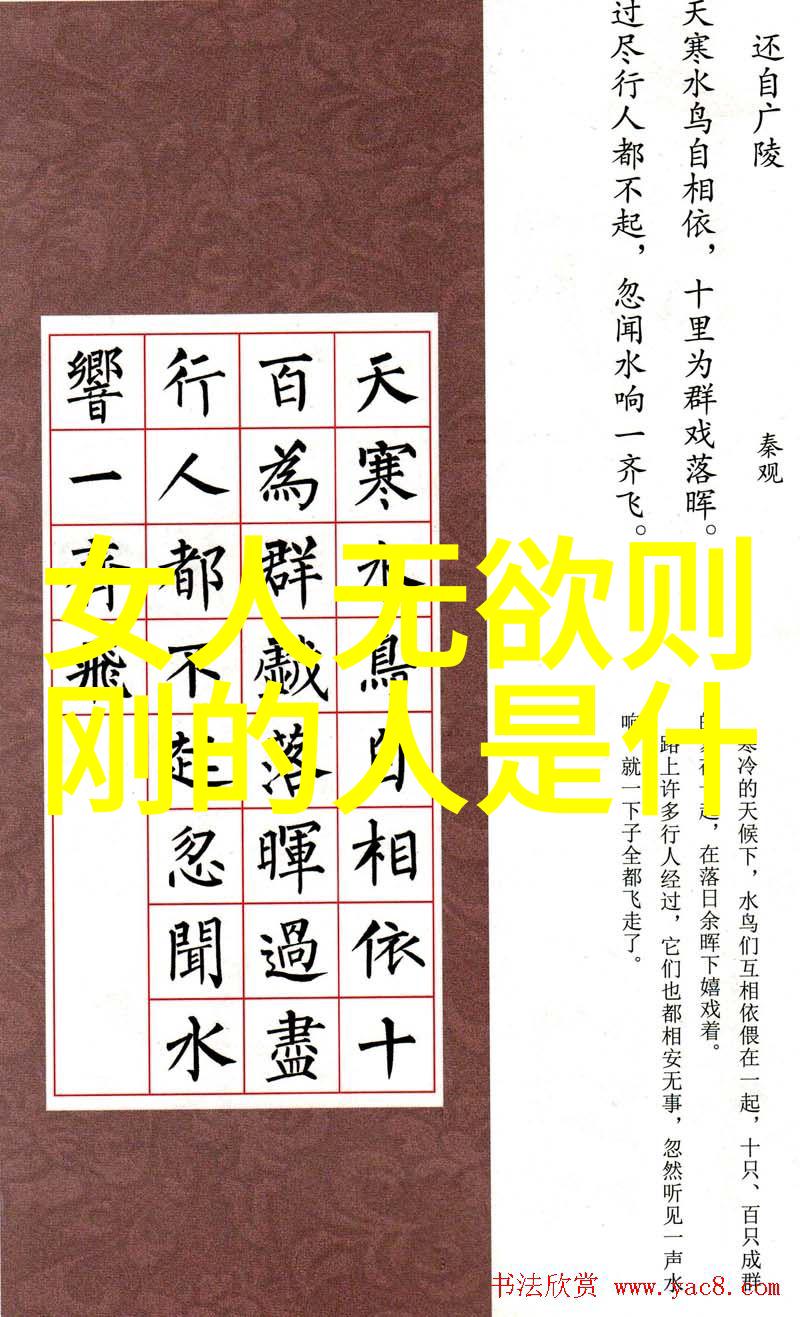 还自广陵
秦观
天寒水鸟自相依，十里为群戏落晖。
过尽行人都不起，忽闻水响一齐飞。
女人无欲则
刚的人是什
寒冷的天候下，水鸟们互相依偎在一起，十只、百只成群
起，在落日余晖下嬉戏着。
路上许多行人经过，它们也都相安无事，忽然听见一声水
响，就一下子全都飞走了。
天寒水鳥自相依十
百為群戲落暉過盡
行人都不起忽聞水
響一齊飛
书法欣赏 www.yac8.com